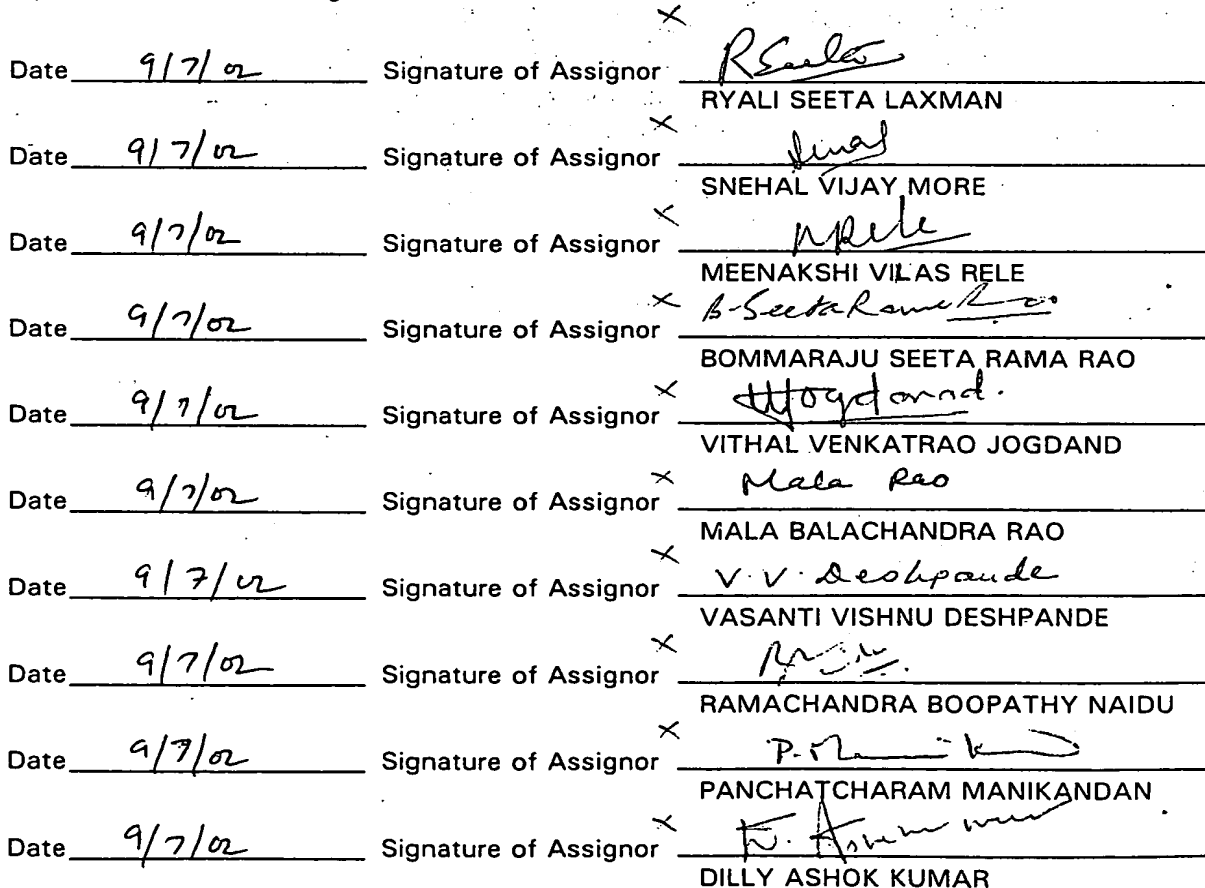 Date 9/7/02 Signature of Assignor × R Seeta
RYALI SEETA LAXMAN
Date 9/7/02 Signature of Assignor ×
SNEHAL VIJAY MORE
Date 9/7/02 Signature of Assignor × MRele
MEENAKSHI VILAS RELE
Date 9/7/02 Signature of Assignor × B-Seeta Rama Rao
BOMMARAJU SEETA RAMA RAO
Date 9/7/02 Signature of Assignor × VVJogdand.
VITHAL VENKATRAO JOGDAND
Date 9/7/02 Signature of Assignor × Mala Rao
MALA BALACHANDRA RAO
Date 9/7/02 Signature of Assignor × V.V. Deshpande
VASANTI VISHNU DESHPANDE
Date 9/7/02 Signature of Assignor ×
RAMACHANDRA BOOPATHY NAIDU
Date 9/7/02 Signature of Assignor × P.
PANCHATCHARAM MANIKANDAN
Date 9/7/02 Signature of Assignor ×
DILLY ASHOK KUMAR